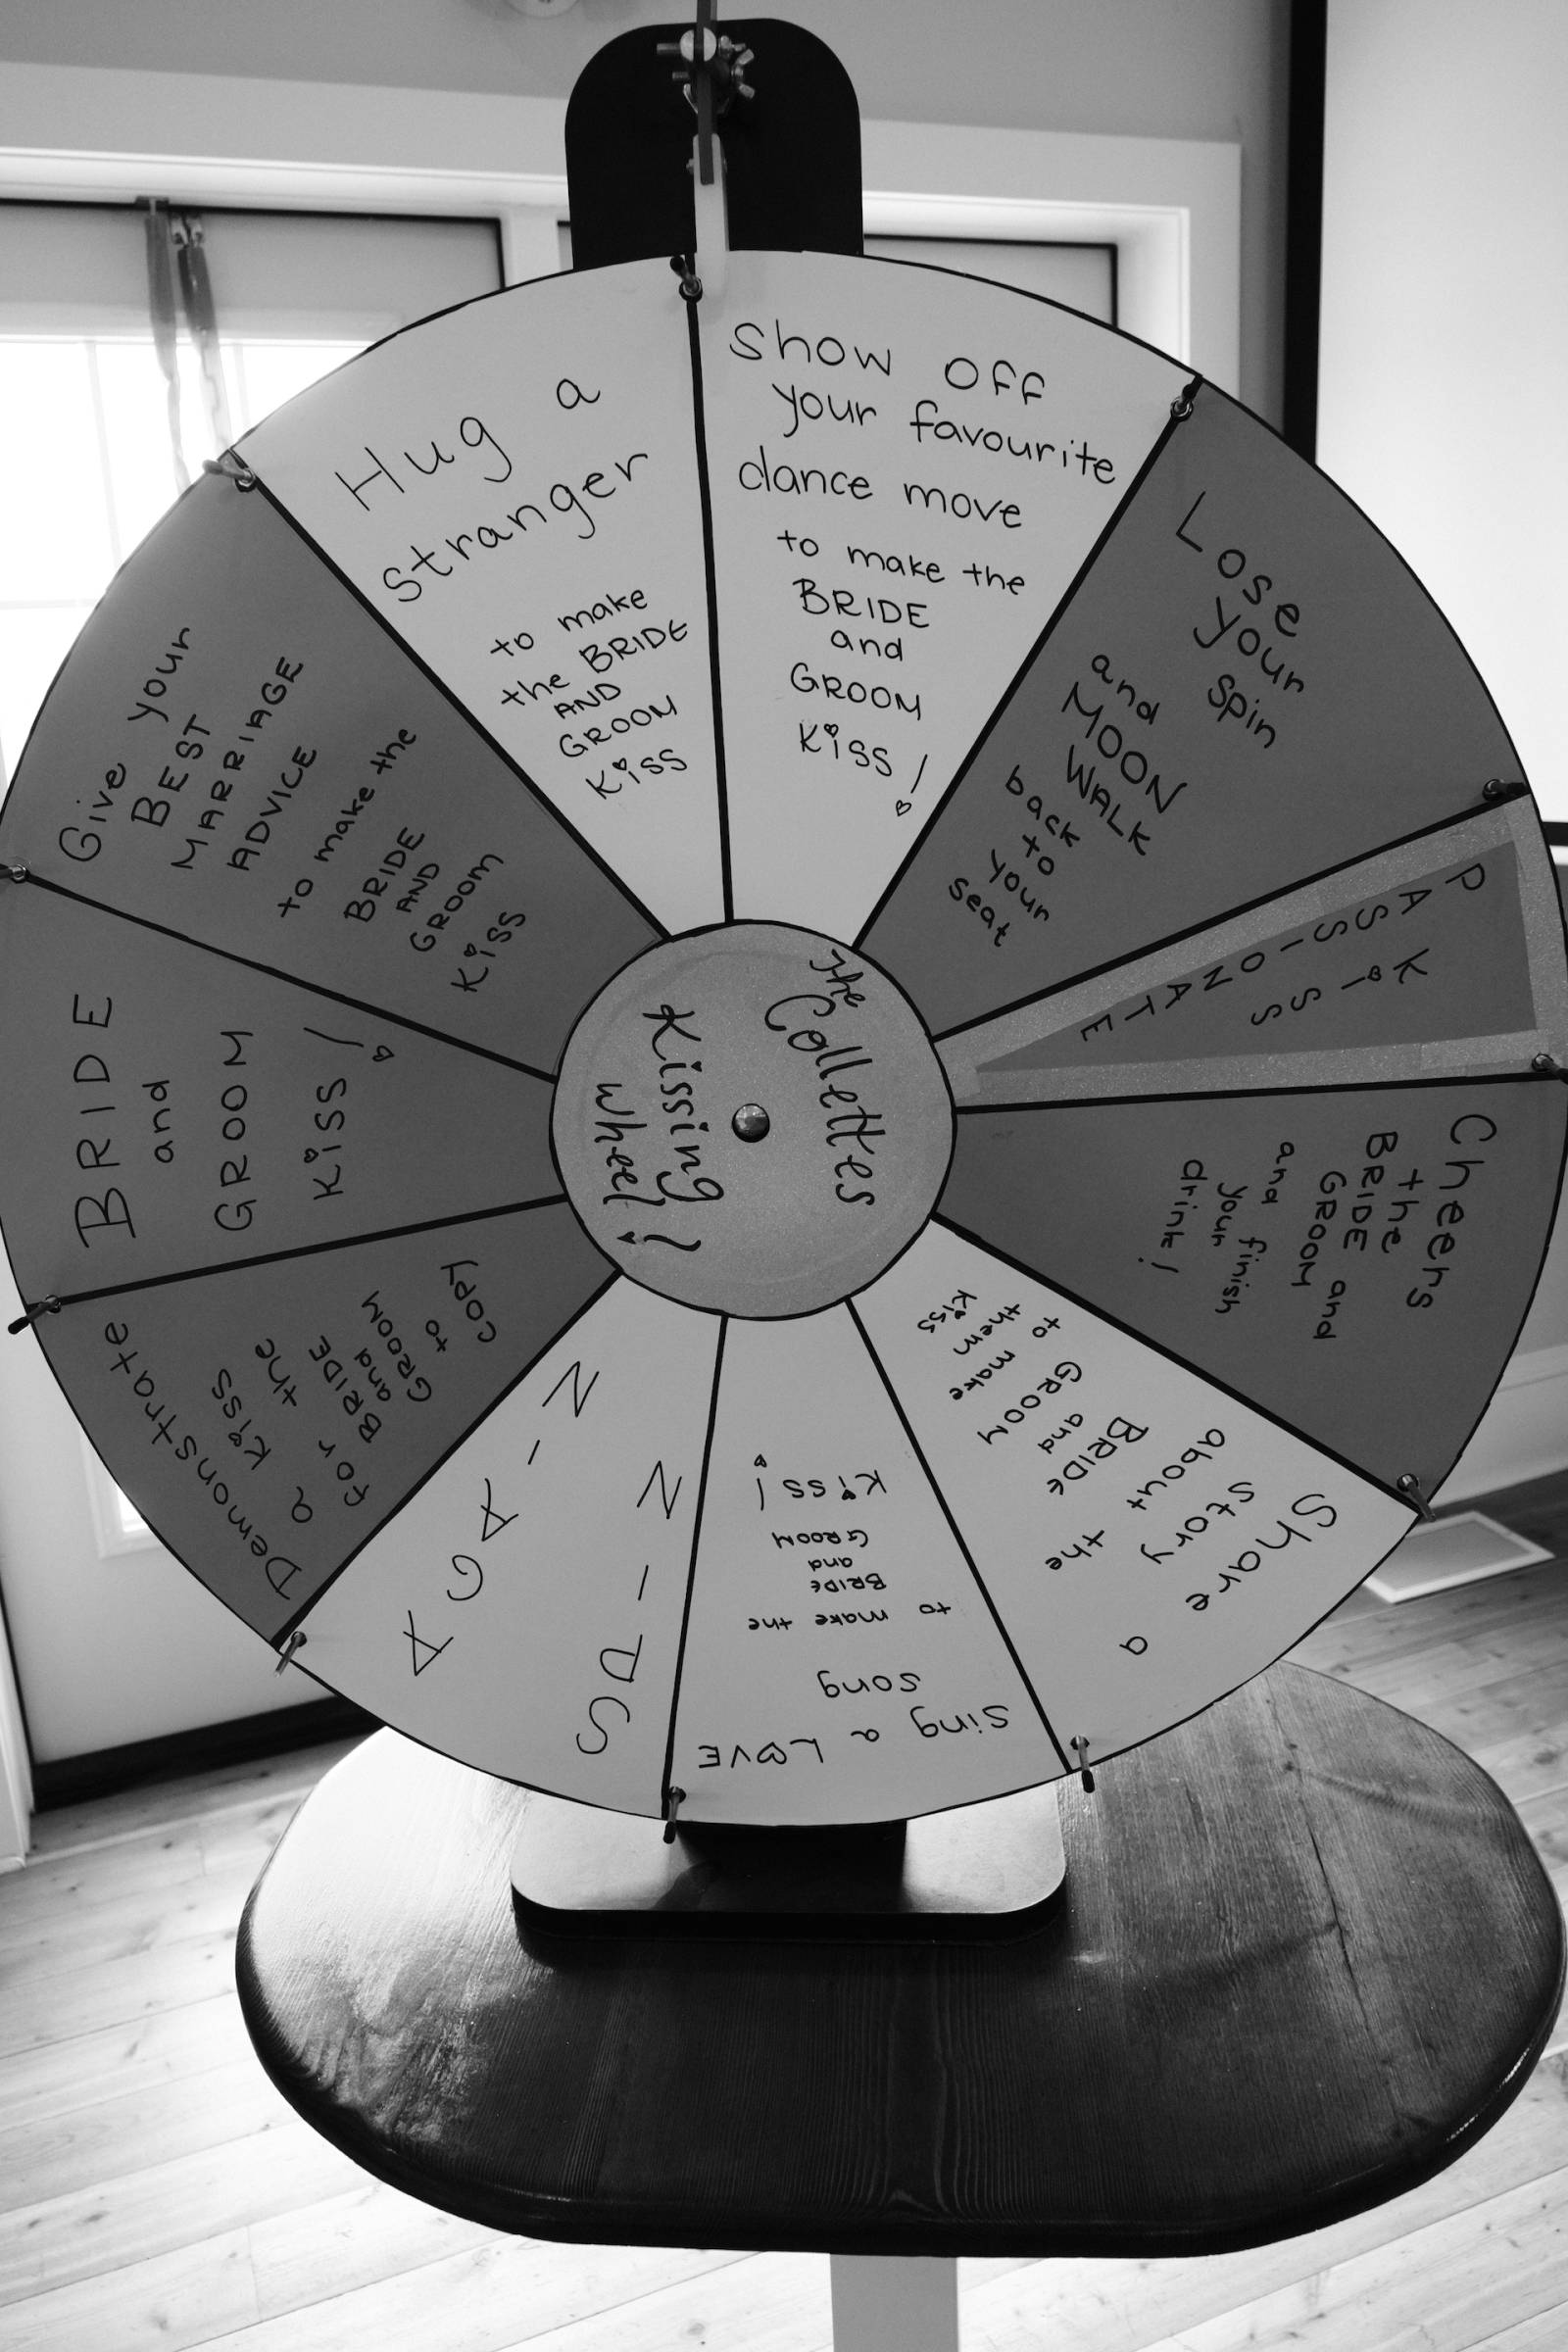 Show off
your favourite
dance move
to make the
BRIDE
and
GROOM
Kiss!
Lose
your
spin
and
MOON
WALK
back
to
your
seat
PASSIONATE
KiSS
Cheers
the
BRIDE and
GROOM
and finish
your
drink!
Share a
story
about the
BRIDE
and
GROOM
to make
them
kiss
Sing a LOVE
song
to make the
BRIDE
and
GROOM
Kiss!
SPIN
AGAIN
Demonstrate
a kiss
for the
BRIDE
and
GROOM
to
COPY
BRIDE
and
GROOM
Kiss!
Give your
BEST
MARRIAGE
ADVICE
to make the
BRIDE
AND
GROOM
Kiss
Hug a
stranger
to make
the BRIDE
AND
GROOM
Kiss
The
Collettes
Kissing
Wheel!